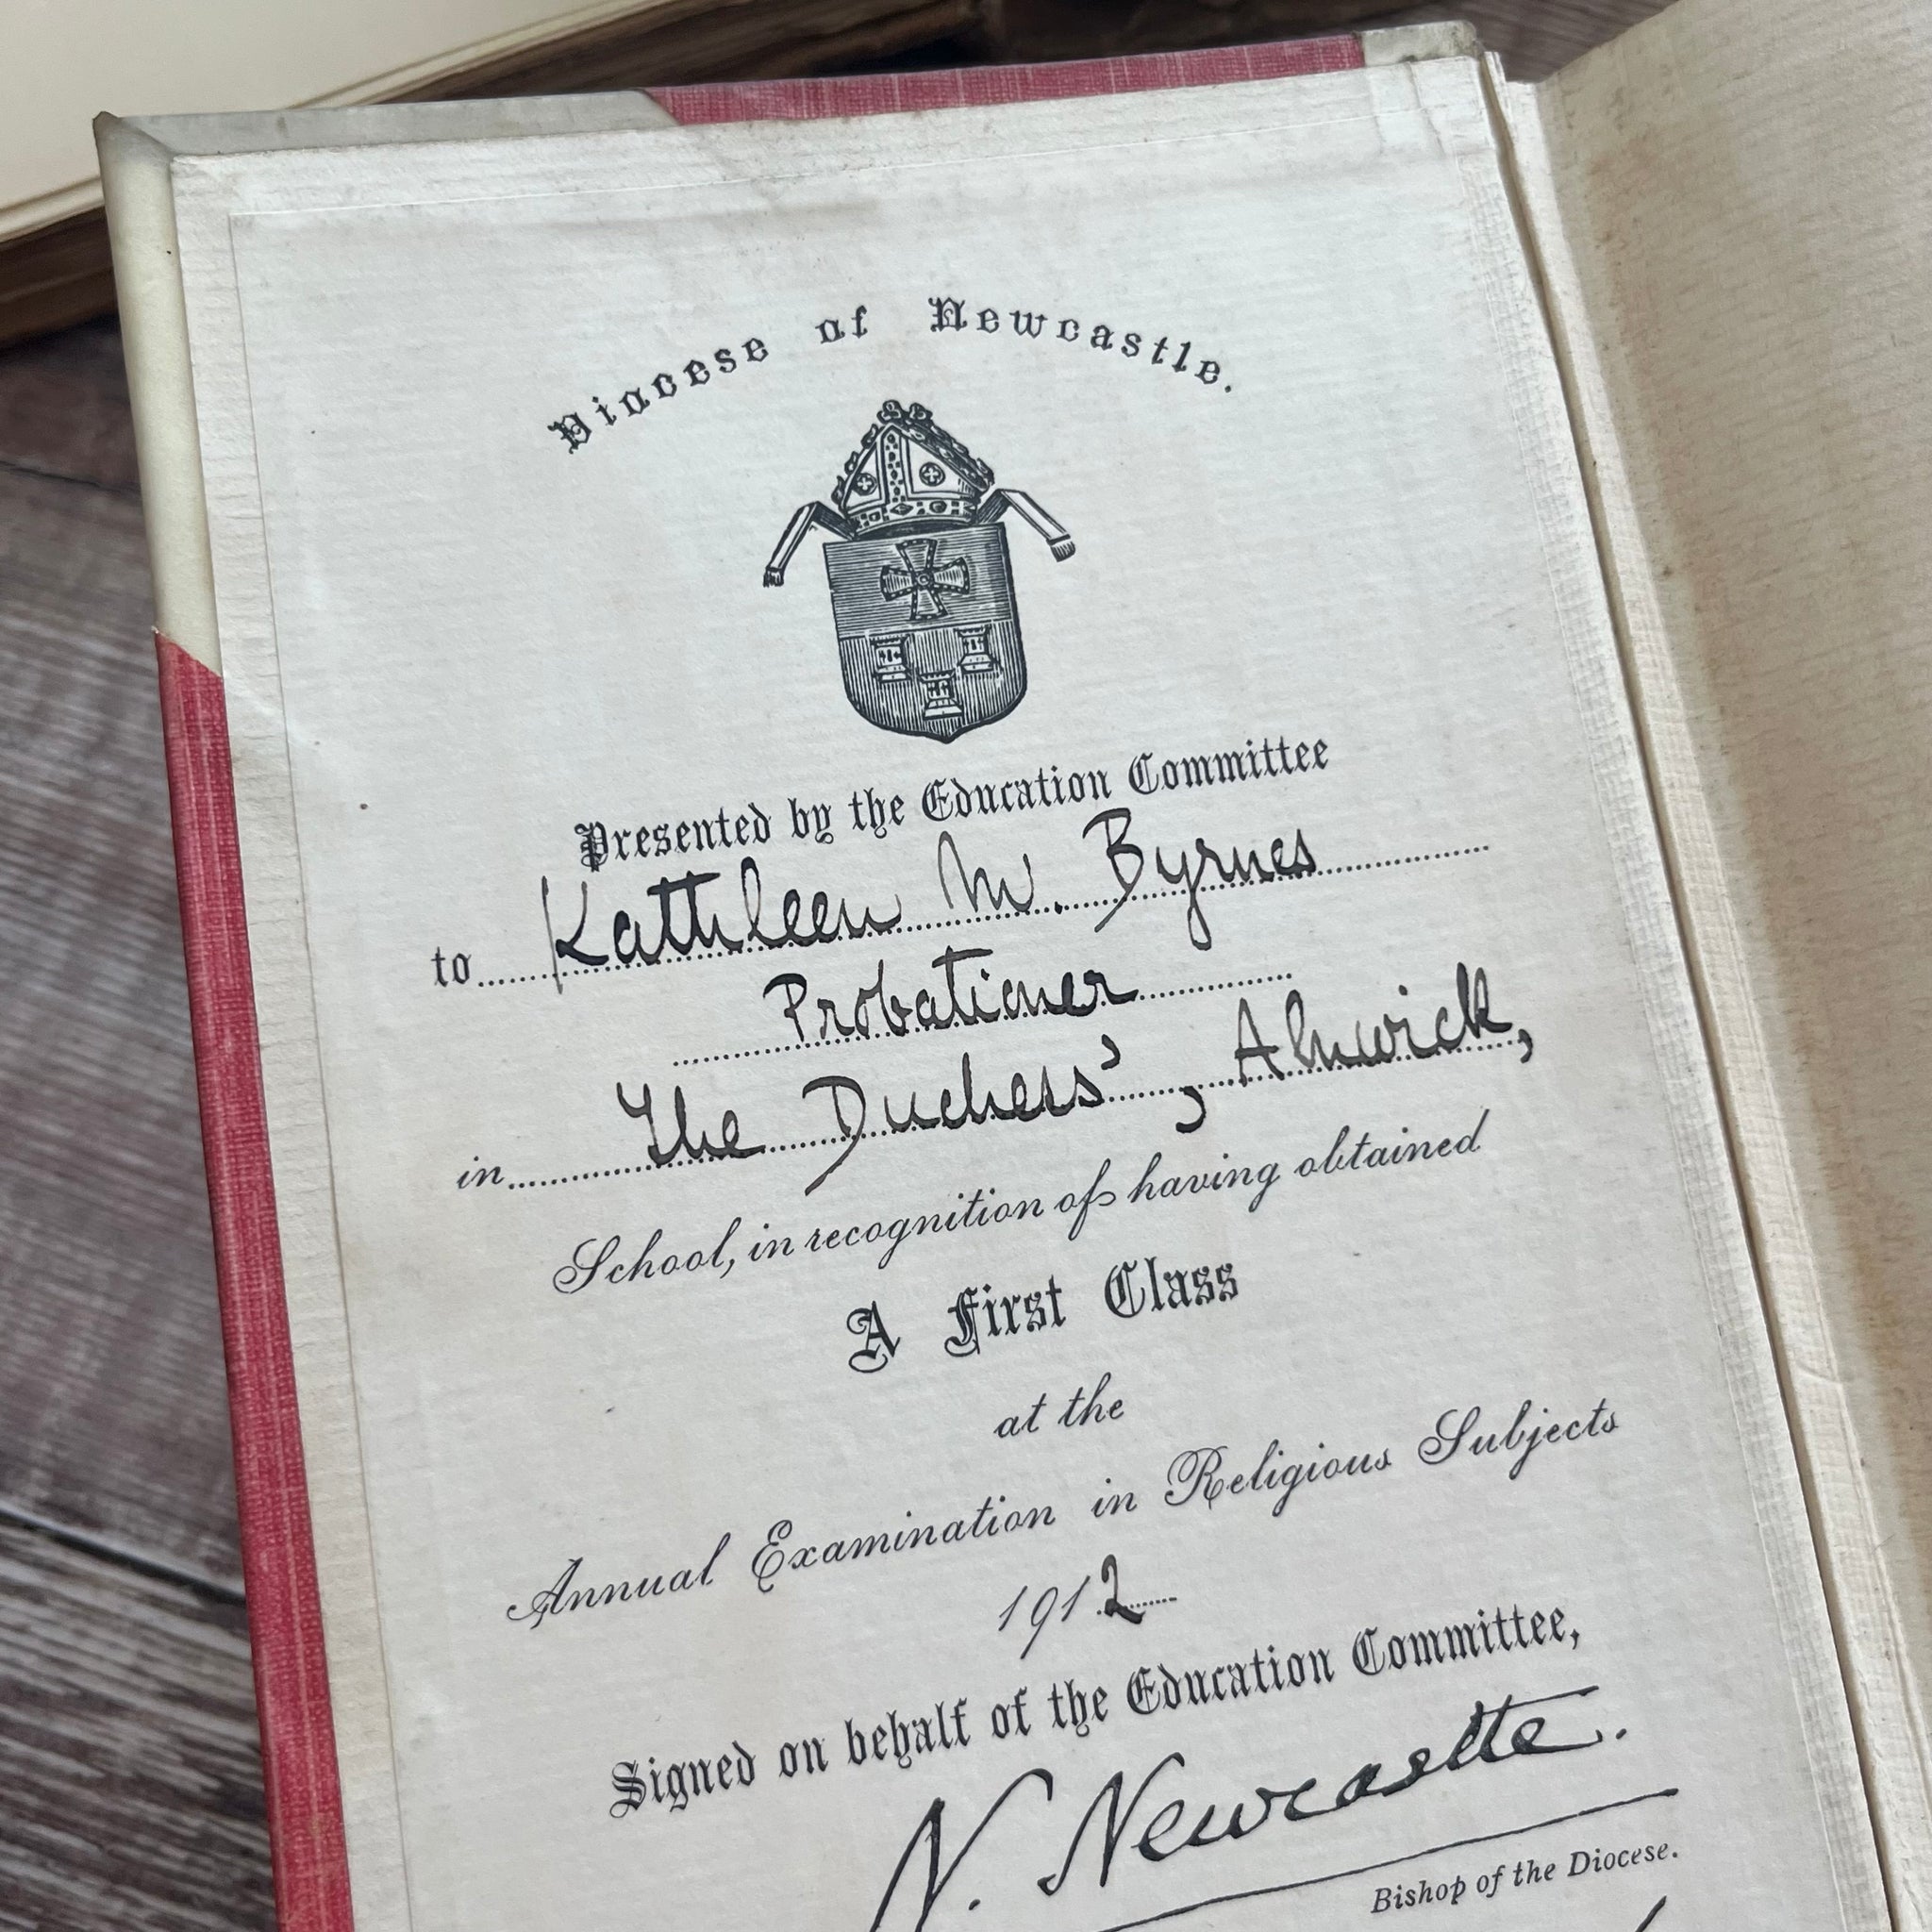 Diocese of Newcastle.
Presented by the Education Committee
to Kathleen M. Byrnes
Probationer
in The Duchess', Alnwick,
School, in recognition of having obtained
A First Class
at the
Annual Examination in Religious Subjects
1912
Signed on behalf of the Education Committee,
N. Newcastle.
Bishop of the Diocese.